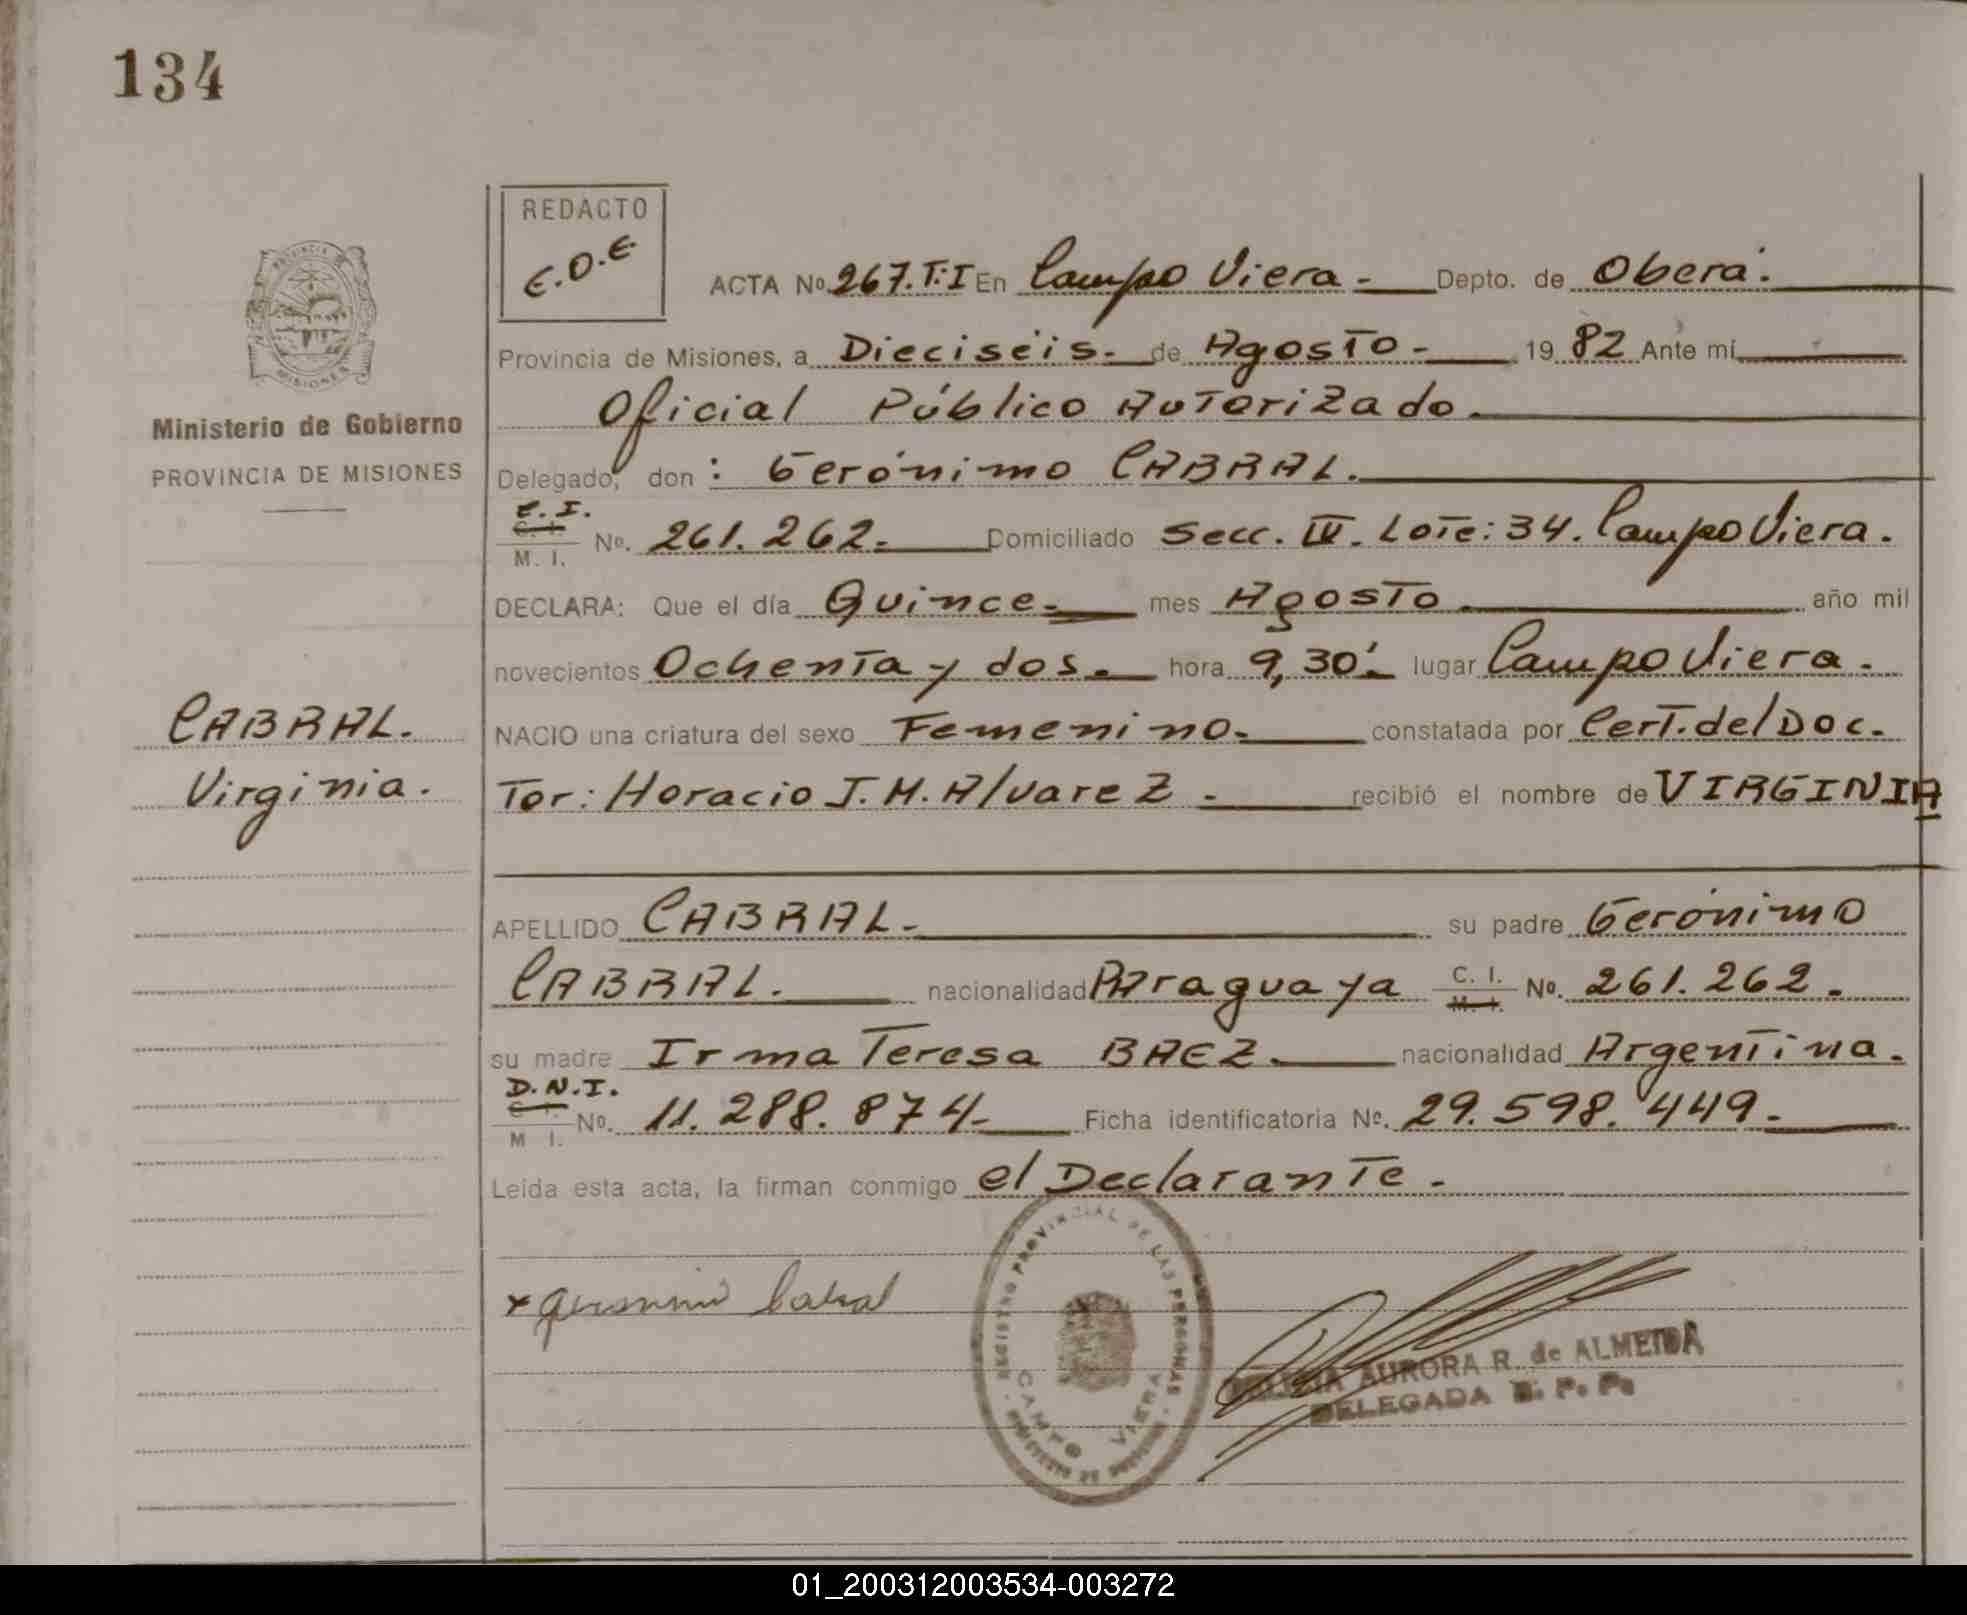 134
REDACTO
E.O.E
ACTA Nº 267.T:I En Campo Viera.- Depto. de Oberá.
Provincia de Misiones, a Dieciseis.- de Agosto.- 19 82 Ante mí
Oficial Público Autorizado.
Delegado, don : Gerónimo CABRAL.
C.I.
C. I.
M. I.
Nº. 261.262.- Domiciliado Secc. IV. Lote: 34. Campo Viera.
DECLARA: Que el día Quince.- mes Agosto año mil
novecientos Ochenta y dos.- hora 9,30'.- lugar Campo Viera.
NACIO una criatura del sexo Femenino.- constatada por Cert. del Doc.
Tor: Horacio J.M. Alvarez.- recibió el nombre de VIRGINIA
APELLIDO CABRAL.- su padre Gerónimo
CABRAL. nacionalidad Paraguaya C. I. M. I. Nº. 261.262.
su madre Irma Teresa BAEZ.- nacionalidad Argentina.
D.N.I.
C. I.
M I.
Nº. 11.288.874.- Ficha identificatoria Nº. 29.598.449.-
Leída esta acta, la firman conmigo el Declarante.
x Geronimo Cabral
REGISTRO PROVINCIAL DE LAS PERSONAS
CAMPO VIERA
AURORA R. de ALMEIDA
DELEGADA R. P. P.
Ministerio de Gobierno
PROVINCIA DE MISIONES
PROVINCIA DE
MISIONES
CABRAL.
Virginia.
01_200312003534-003272